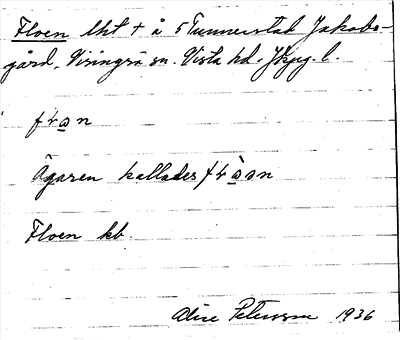 Floen lht † å 5 Tunnerstad Jakobs-
gård, Visingsö sn. Vista hd. Jkpg. l.
Ägaren kallades
Floen kb.
Alice Petersson 1936